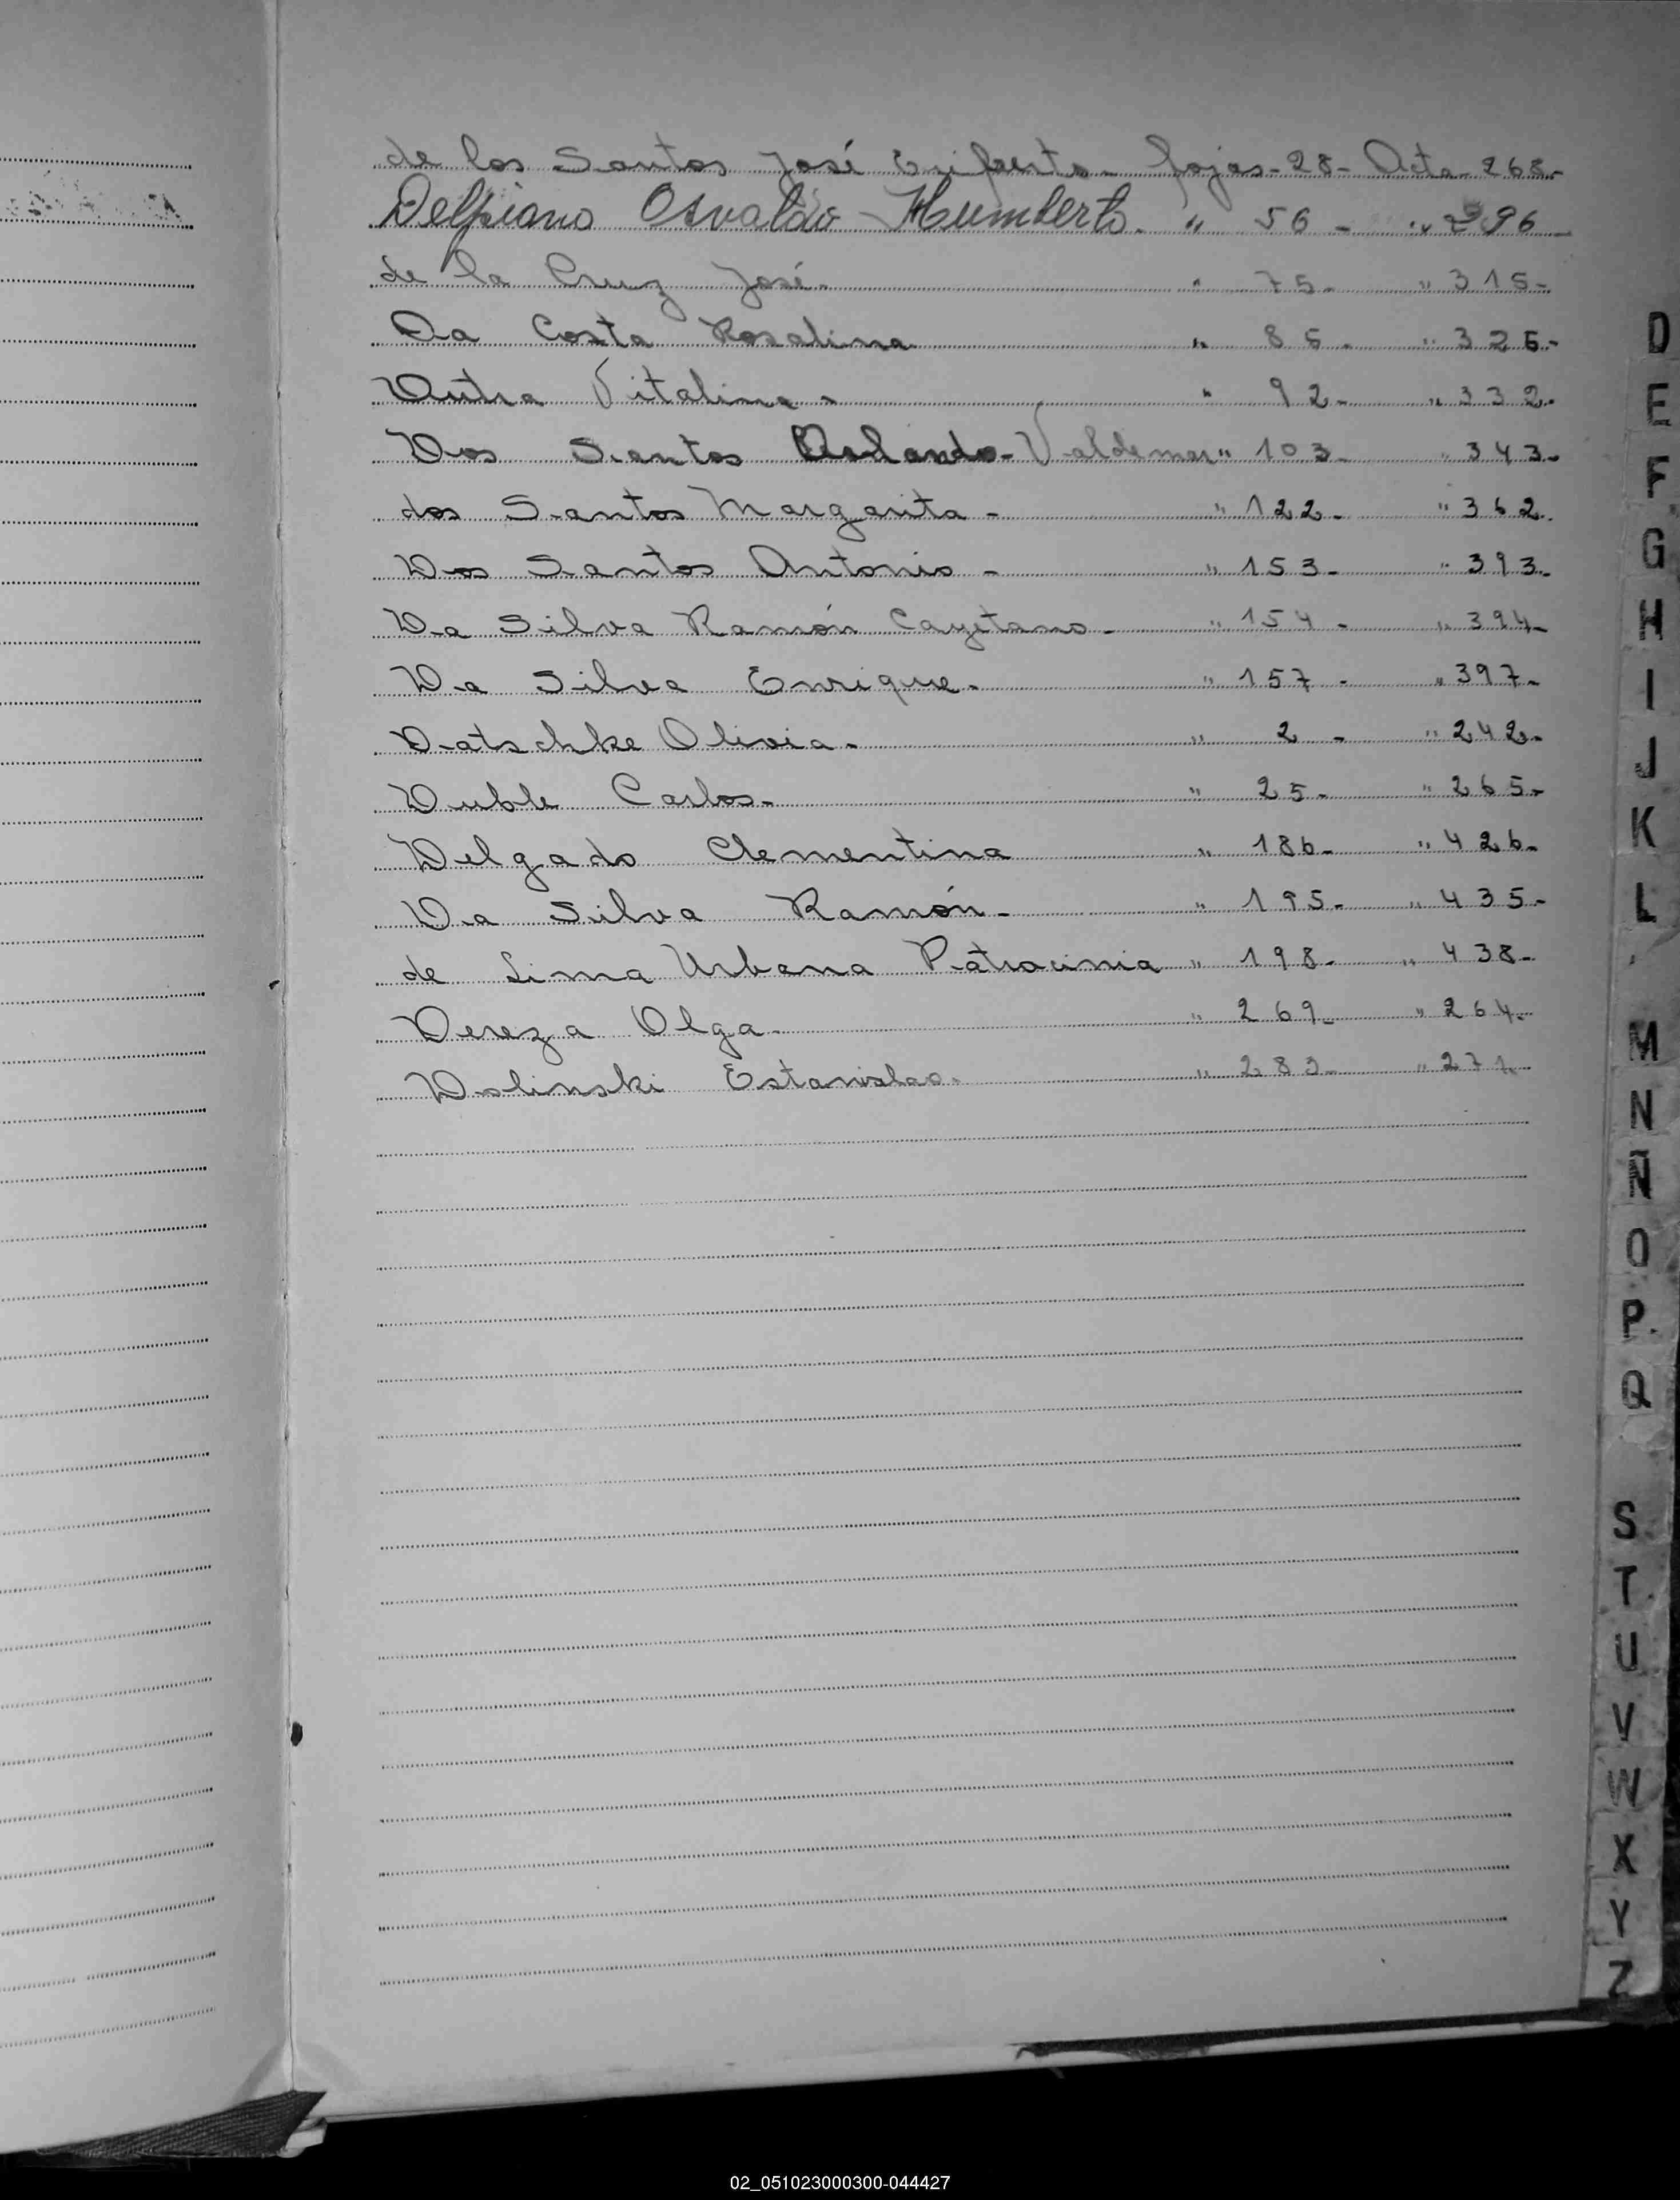 de los Santos José Eriberto - fojas - 28 - Acta - 268 -
Delpiano Osvaldo Humberto. " 56 - " 296
de la Cruz José. " 75 - " 315 -
Da Costa Rosalina " 85 - " 325 -
Dutra Vitalina - " 92 - " 332 -
Dos Santos Orlando - Valdemar " 103 - " 343 -
dos Santos Margarita - " 122 - " 362.
Dos Santos Antonio - " 153 - " 393 -
Da Silva Ramón Cayetano - " 154 - " 394 -
Da Silva Enrique - " 157 - " 397 -
Datschke Olivia - " 2 - " 242 -
Duble Carlos - " 25 - " 265 -
Delgado Clementina " 186 - " 426 -
Da Silva Ramón - " 195 - " 435 -
de Lima Urbana Patrocinia " 198 - " 438 -
Dereza Olga - " 269 - " 264 -
Dolinski Estanislao - " 283 - " 271 -
D
E
F
G
H
I
J
K
L
M
N
Ñ
O
P
Q
S
T
U
V
W
X
Y
Z
02_051023000300-044427